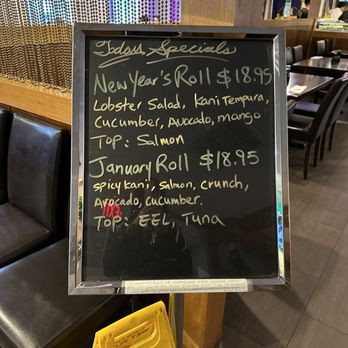 Today Specials
New Year's Roll $18.95
Lobster Salad, Kani Tempura,
Cucumber, Avocado, mango
TOP: Salmon
January Roll $18.95
spicy kani, salmon, crunch,
Avocado, cucumber.
TOP: EEL, Tuna